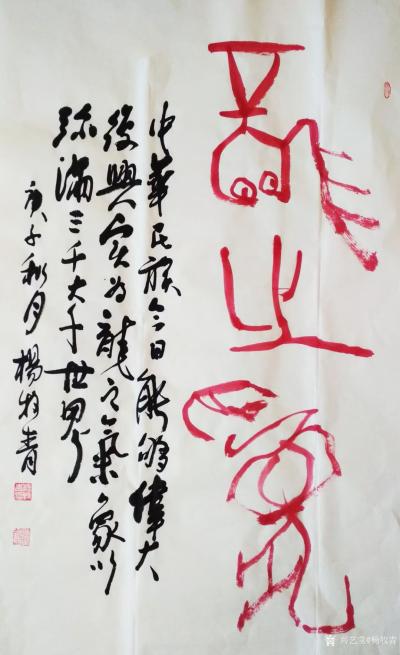 龍之
中華民族今日能夠偉大
復興實为龍之氣象以
弥滿三千大千世界
庚子秋月 楊牧青
@杨牧青